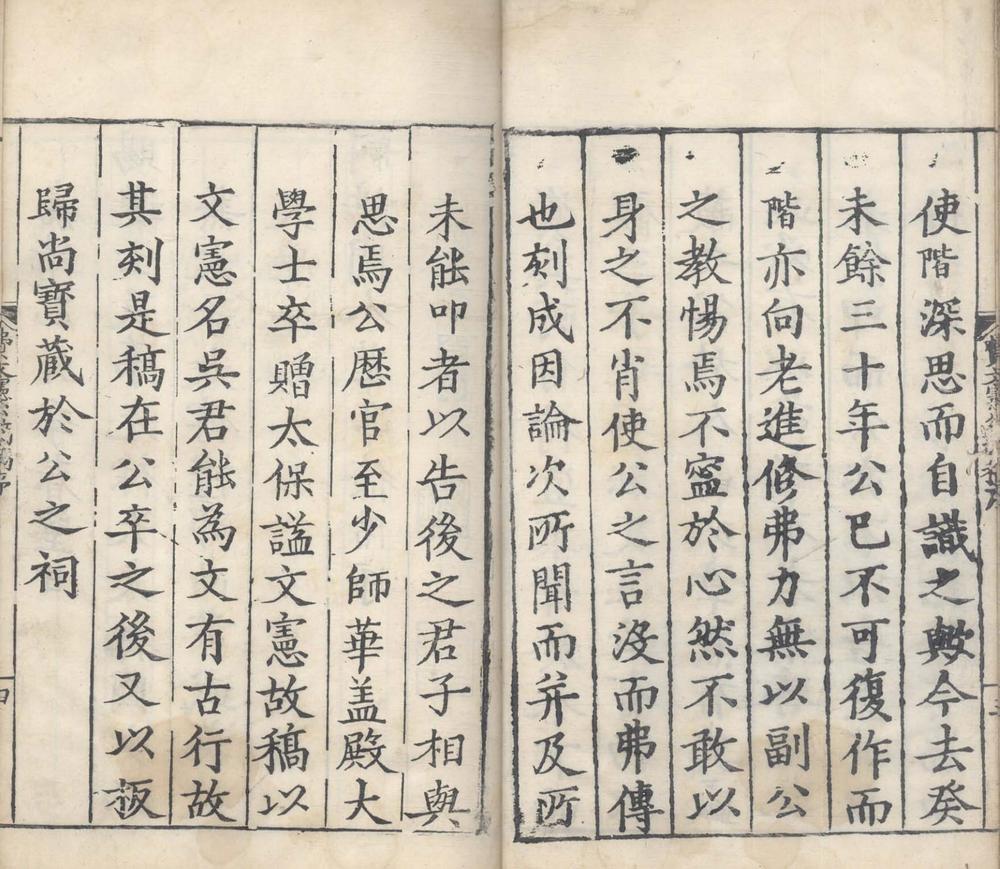 使階深思而自識之歟今去癸
未餘三十年公已不可復作而
階亦向老進修弗力無以副公
之教惕焉不寧於心然不敢以
身之不肖使公之言沒而弗傳
也刻成因論次所聞而并及所
未能叩者以告後之君子相與
思焉公歷官至少師華盖殿大
學士卒贈太保謚文憲故稿以
文憲名吳君能為文有古行故
其刻是稿在公卒之後又以板
歸尚寳藏於公之祠